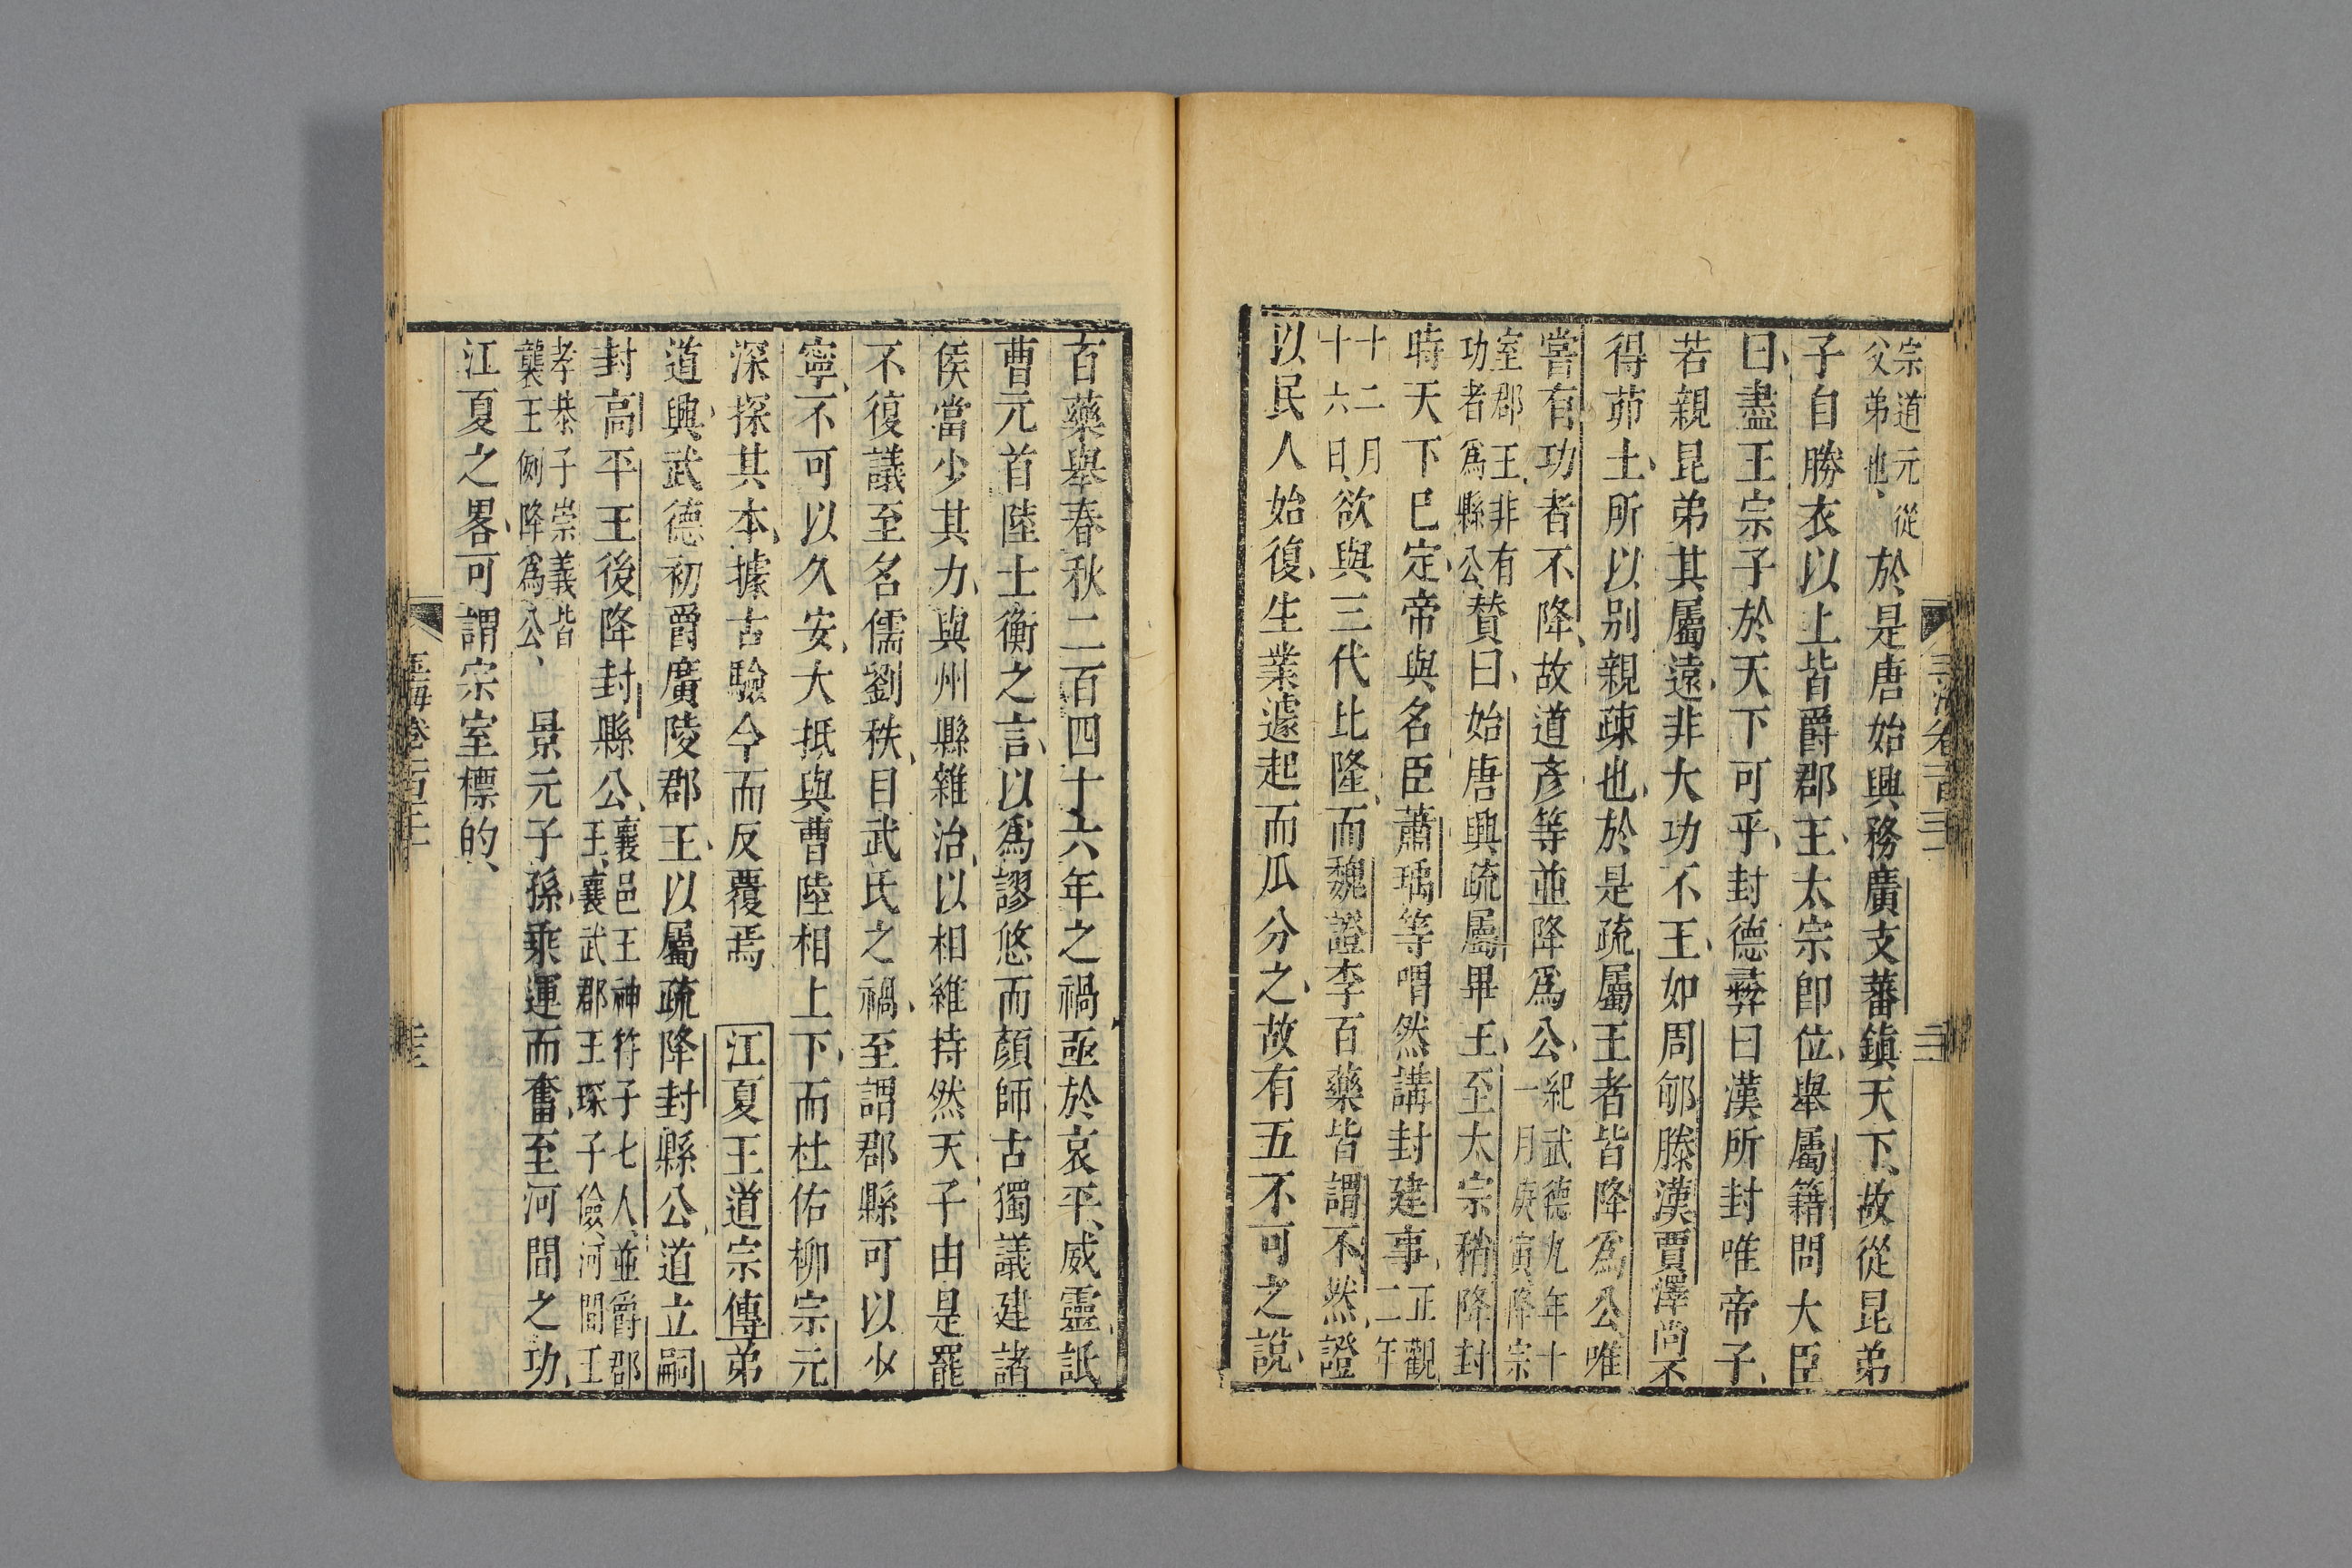 宗道元從
父弟也、於是唐始興務廣支蕃鎮天下、故從昆弟
子自勝衣以上皆爵郡王、太宗卽位、舉屬籍問大臣
曰、盡王宗子於天下可乎、封德彝曰漢所封唯帝子、
若親昆弟其屬遠、非大功不王、如周郇滕漢賈澤尚不
得茆土、所以别親疎也、於是疏屬王者皆降爲公、唯
嘗有功者不降、故道彦等並降爲公、紀武德九年十
一月庚寅降宗
室郡王、非有
功者爲縣公、贊曰、始唐興疏屬畢王、至太宗稍降封
時天下巳定、帝與名臣蕭瑀等喟然講封建事、正觀
二年
十二月
十六日、欲與三代比隆、而魏證李百藥皆謂不然、證
以民人始復、生業遽起而瓜分之、故有五不可之說、
百藥舉春秋二百四十六年之禍亟於哀平、威靈詆
曹元首陸士衡之言、以爲謬悠而顏師古獨議建諸
侯當少其力、與州縣雜治、以相維持然天子由是罷
不復議至名儒劉秩、目武氏之禍、至謂郡縣可以少
寧、不可以久安、大抵與曹陸相上下、而杜佑柳宗元
深探其本、據古驗今而反覆焉 江夏王道宗傳弟
道興武德初爵廣陵郡王、以屬疏降封縣公、道立嗣
封高平王後降封縣公、襄邑王神符子七人、並爵郡
王、襄武郡王琛子儉、河間王
孝恭子崇義皆
襲王例降爲公、景元子孫、乘運而奮、至河間之功、
江夏之畧、可謂宗室標的、